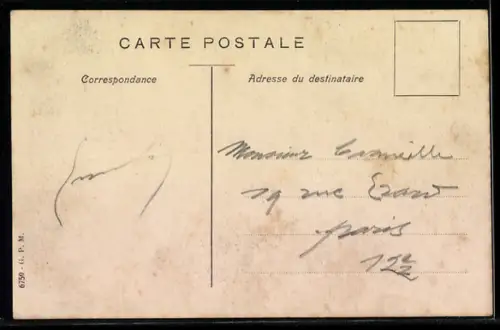 CARTE POSTALE
Correspondance
Adresse du destinataire
Monsieur
19 rue Erard
Paris
12e
6750 - G. P. M.